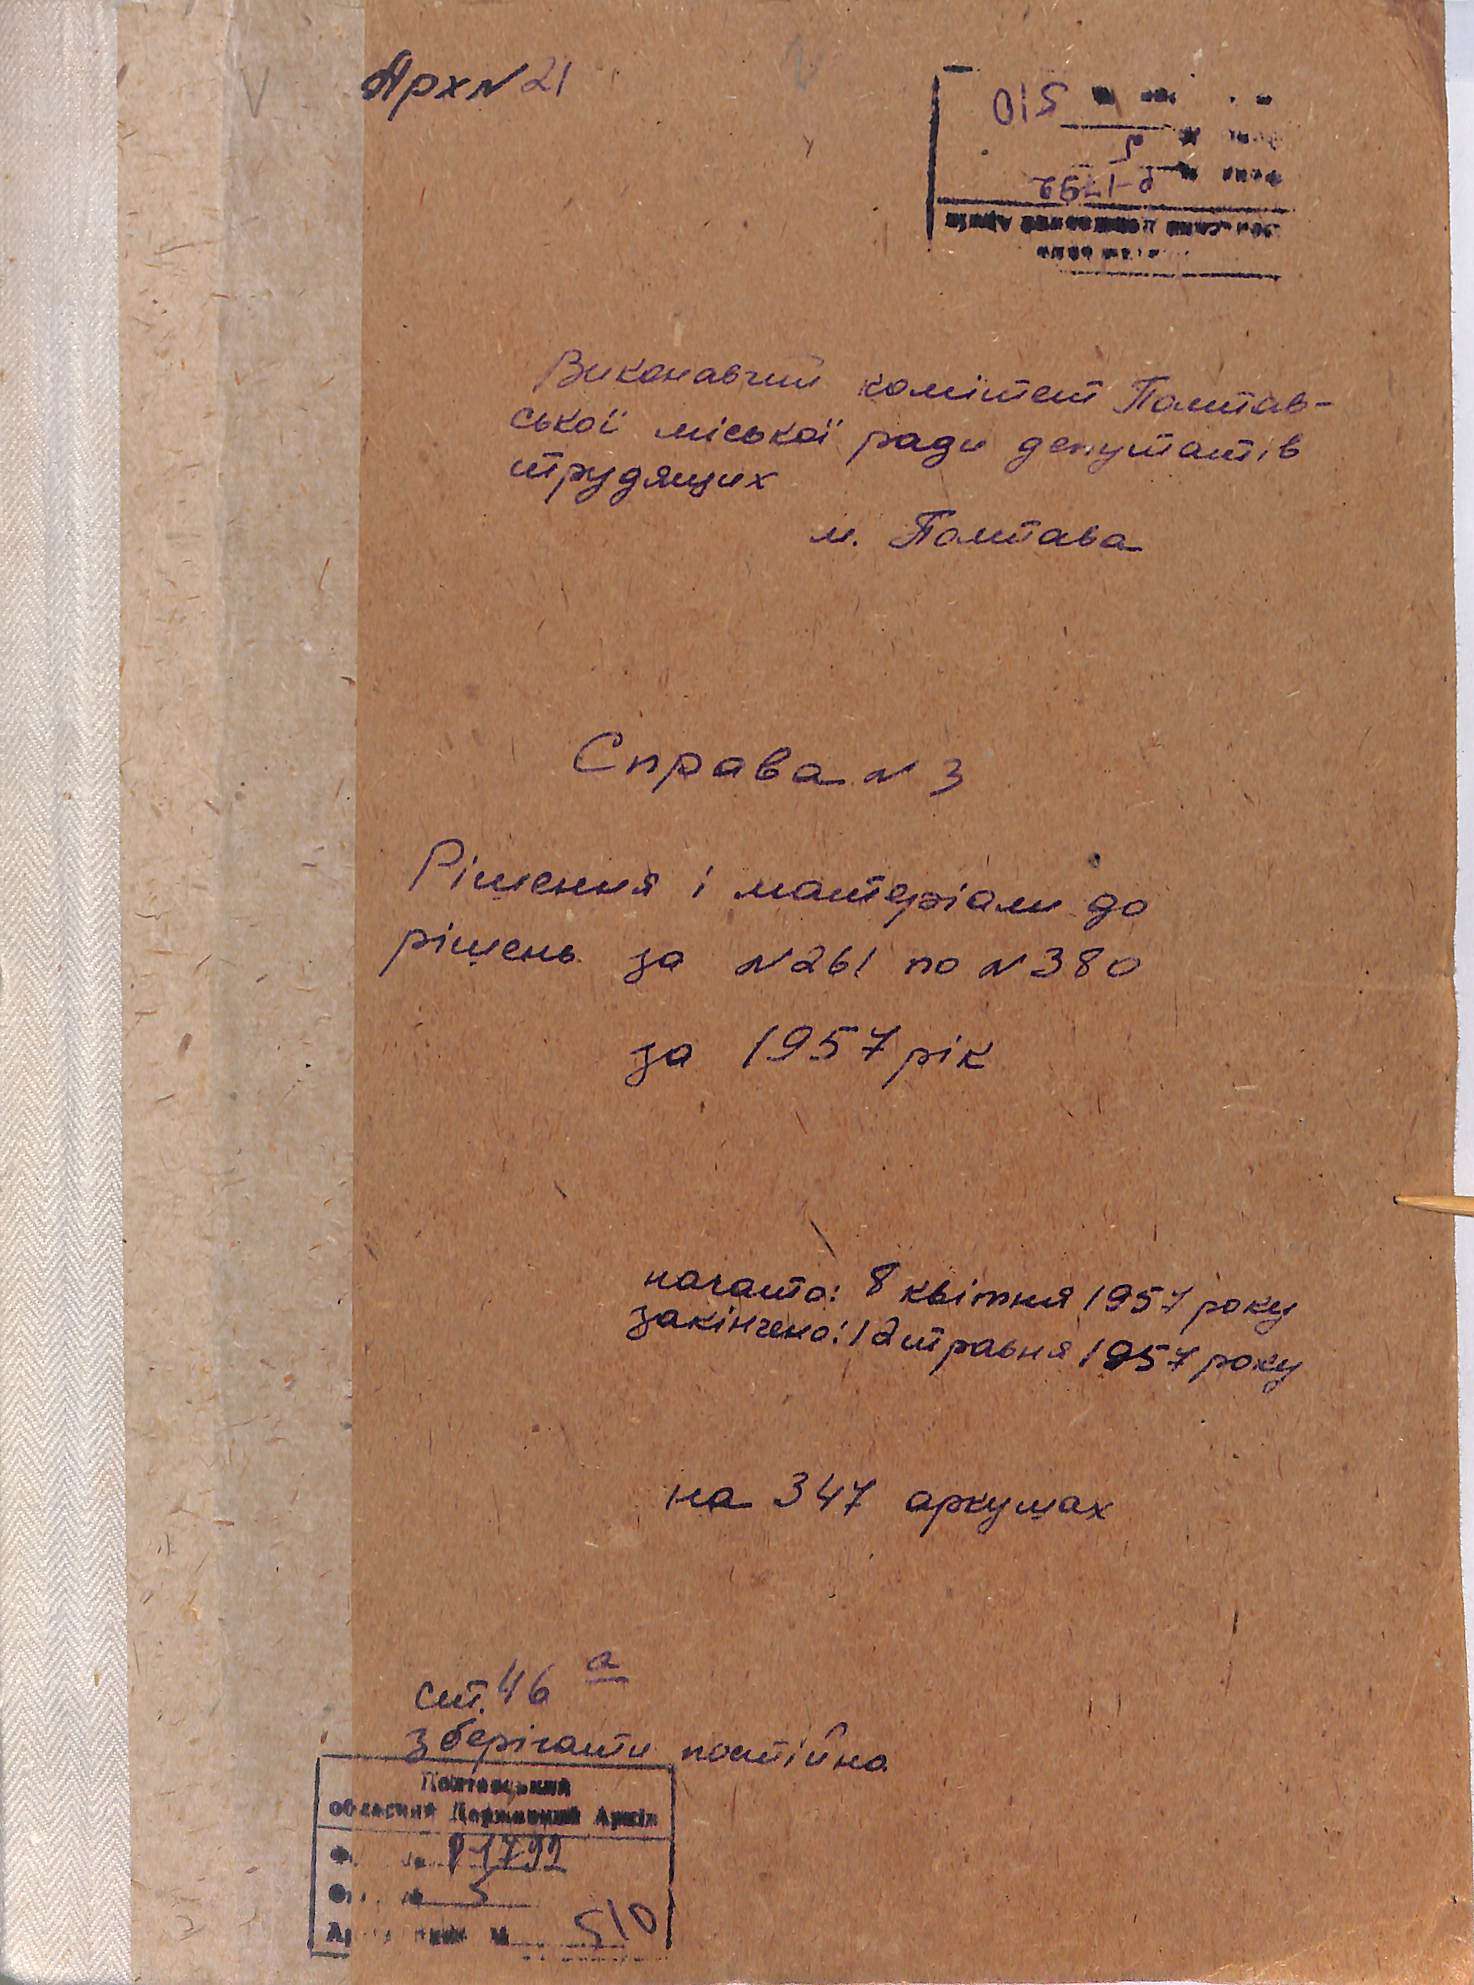 Арх N 21
510
5
Р-1792
Виконавчий комітет Полтав-
ської міської ради депутатів
трудящих
м. Полтава
Справа N 3
Рішення і матеріали до
рішень за N 261 по N 380
за 1957 рік
начато: 8 квітня 1957 року
закінчено: 12 травня 1957 року
на 347 аркушах
ст. 46 а
зберігати постійно
Полтавський
обласний Державний Архів
Р-1792
5
510